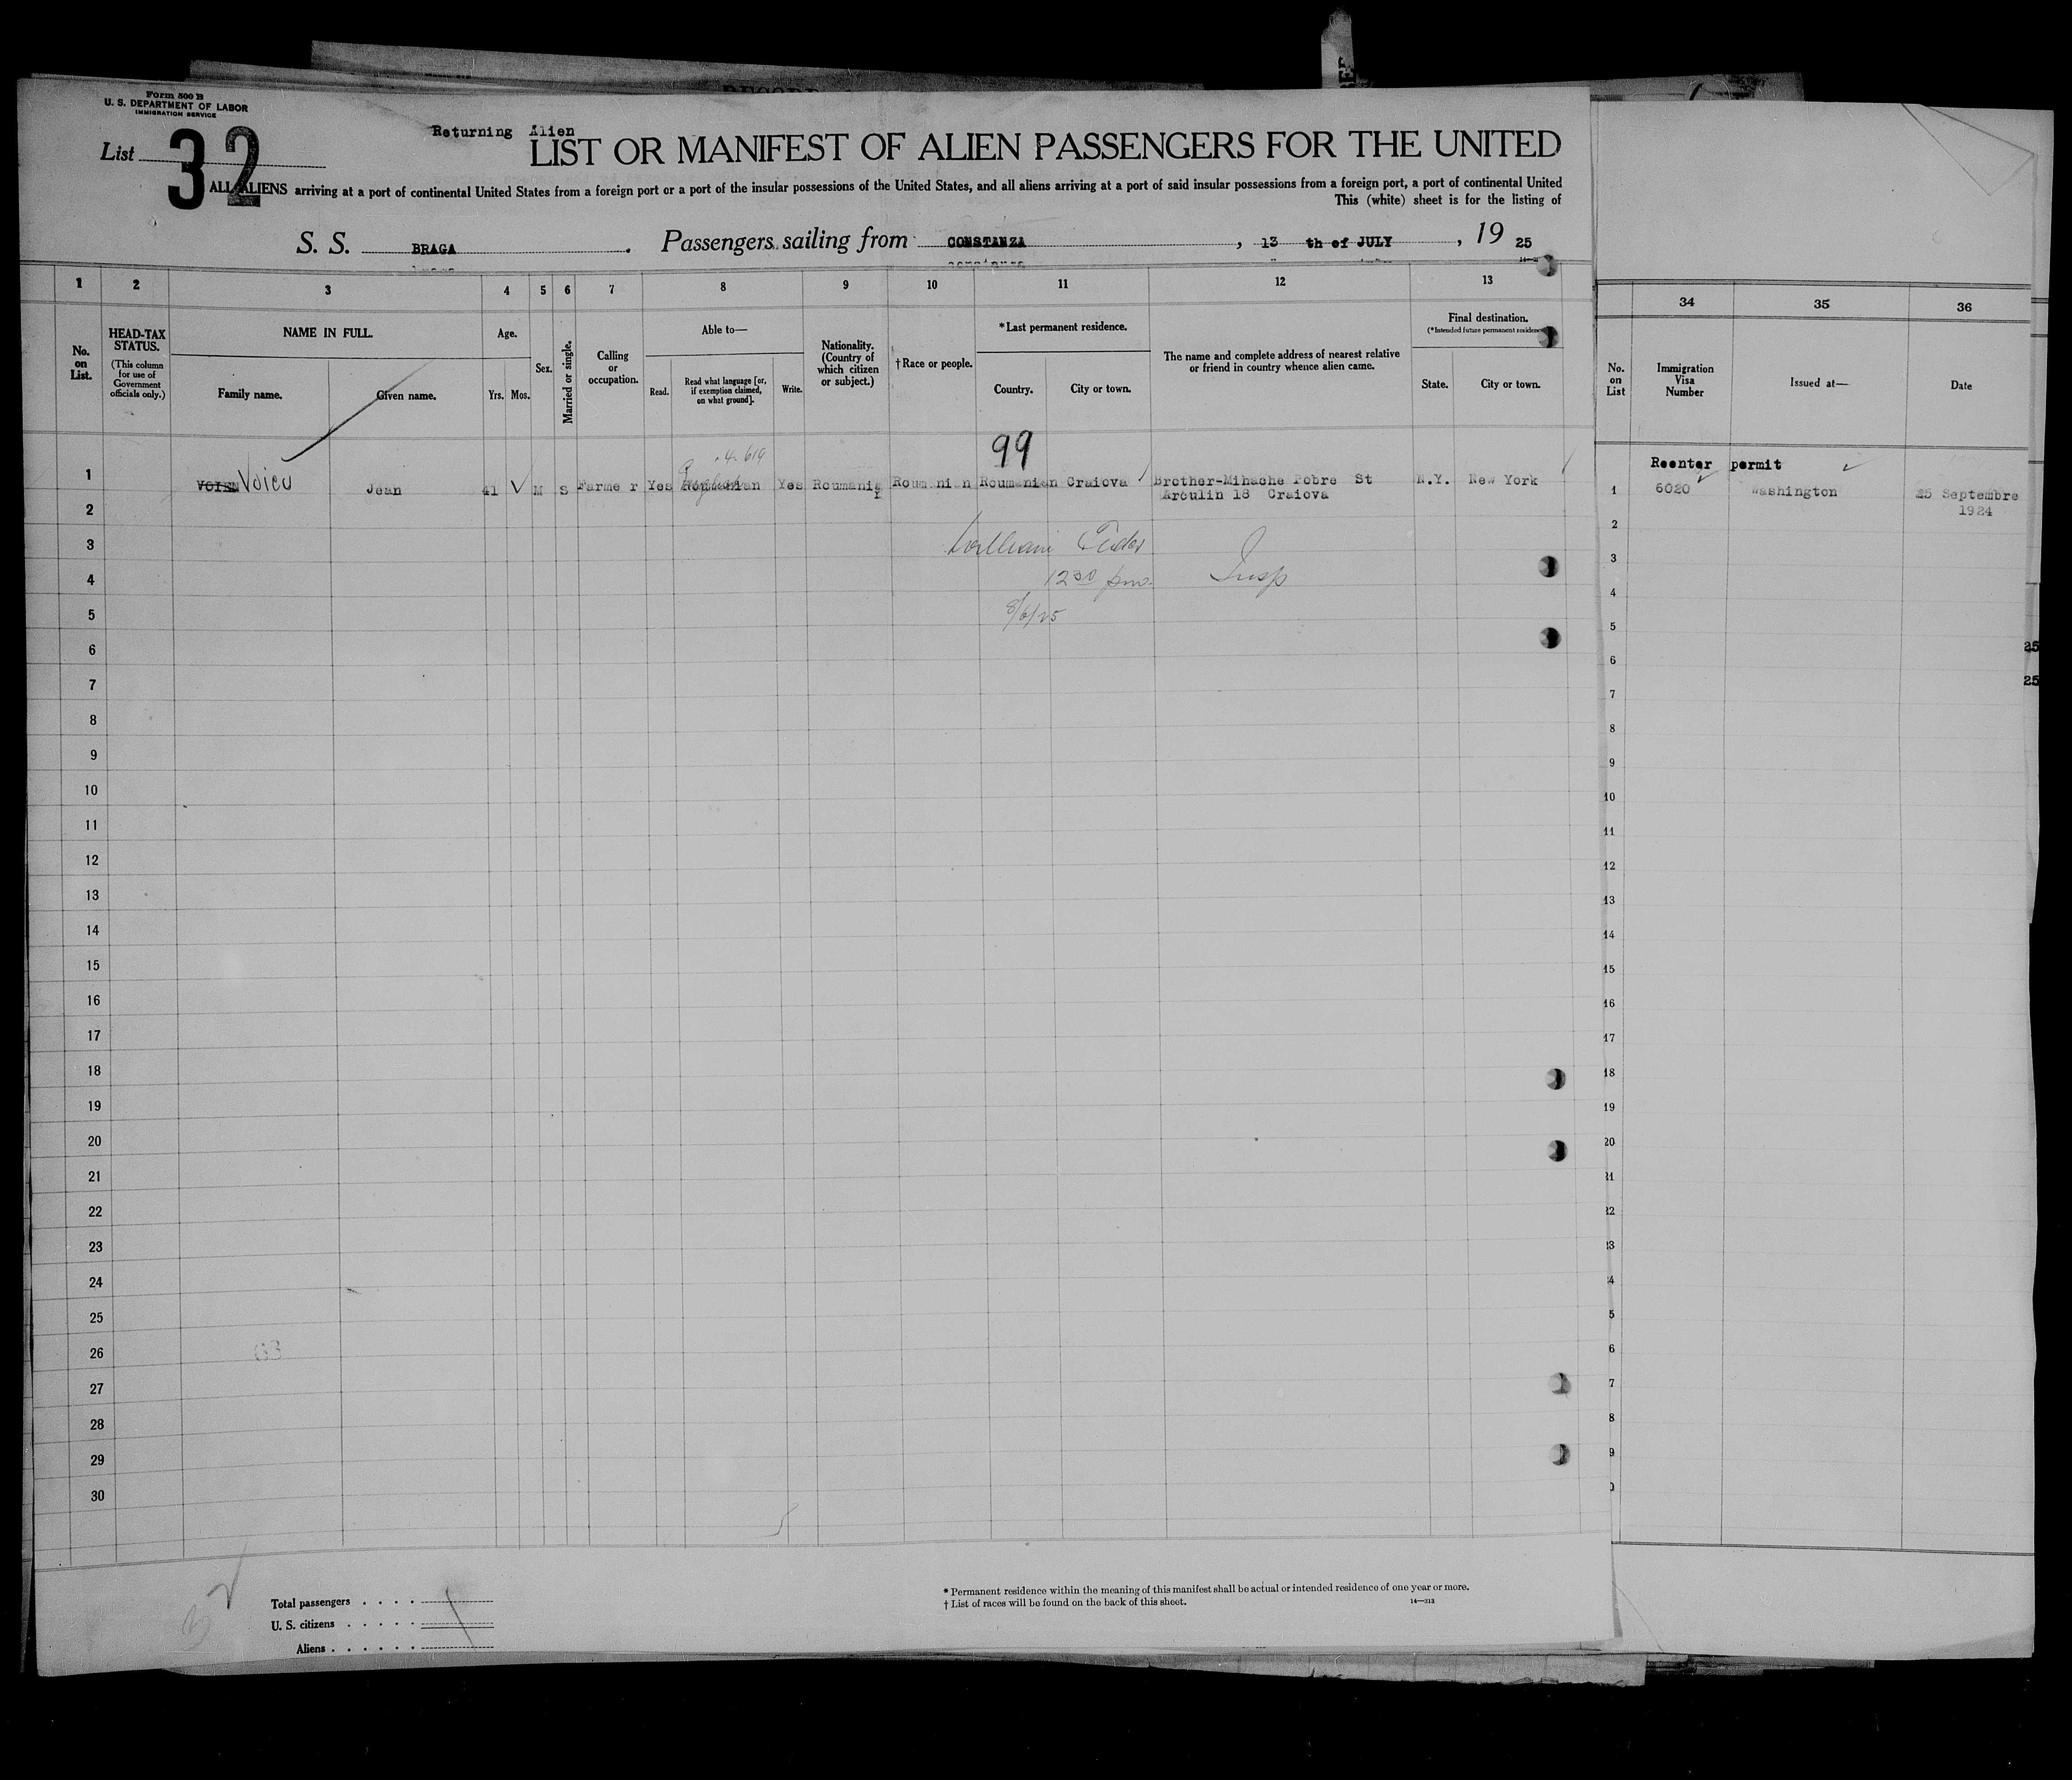 Form 500 B
U. S. DEPARTMENT OF LABOR
IMMIGRATION SERVICE
List 32
Returning Alien
LIST OR MANIFEST OF ALIEN PASSENGERS FOR THE UNITED
ALL ALIENS arriving at a port of continental United States from a foreign port or a port of the insular possessions of the United States, and all aliens arriving at a port of said insular possessions from a foreign port, a port of continental United
This (white) sheet is for the listing of
S. S. BRAGA. Passengers sailing from CONSTANZA, 13 th of JULY, 19 25
1 2 3 4 5 6 7 8 9 10 11 12 13
No. on List.
HEAD-TAX STATUS.
(This column for use of Government officials only.)
NAME IN FULL.
Family name. Given name.
Age.
Yrs. Mos.
Sex.
Married or single.
Calling or occupation.
Able to—
Read. Read what language [or, if exemption claimed, on what ground]. Write.
Nationality. (Country of which citizen or subject.)
†Race or people.
*Last permanent residence.
Country. City or town.
The name and complete address of nearest relative or friend in country whence alien came.
Final destination.
(*Intended future permanent residence
State. City or town.
34 35 36
No. on List
Immigration Visa Number
Issued at—
Date
99
1 Voicu Jean 41 M S Farme r Yes Roumanian Yes Roumania Roumanian Roumanian Craiova Brother-Mihache Pobre St N.Y. New York
Arculin 18 Craiova
Reenter permit
1 6020 Washington 25 Septembre
1924
William
1230 pm. Insp
8/6/25
2
3
4
5
6
7
8
9
10
11
12
13
14
15
16
17
18
19
20
21
22
23
24
25
26
27
28
29
30
2
3
4
5
6
7
8
9
10
11
12
13
14
15
16
17
18
19
20
21
22
23
4
5
6
7
8
9
0
25
25
Total passengers . . . .
U. S. citizens . . . . .
Aliens . . . . . .
* Permanent residence within the meaning of this manifest shall be actual or intended residence of one year or more.
† List of races will be found on the back of this sheet. 14—313